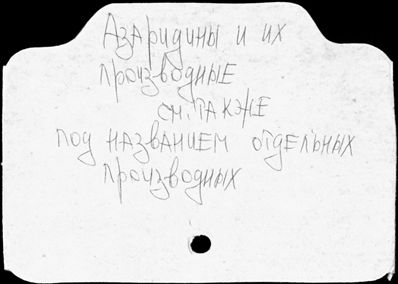 Азаридины и их
производные
см. также
под названием отдельных
производных